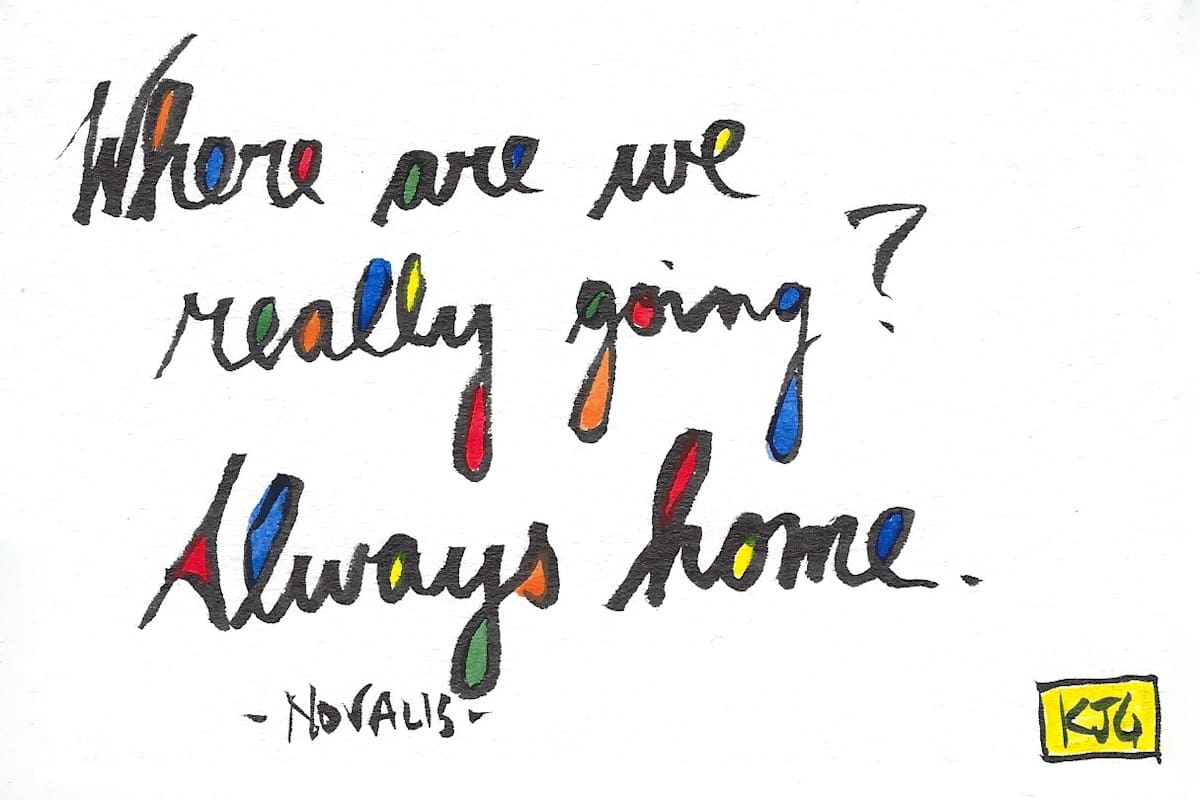 Where are we
really going?
Always home.
-NOVALIS-
KJG